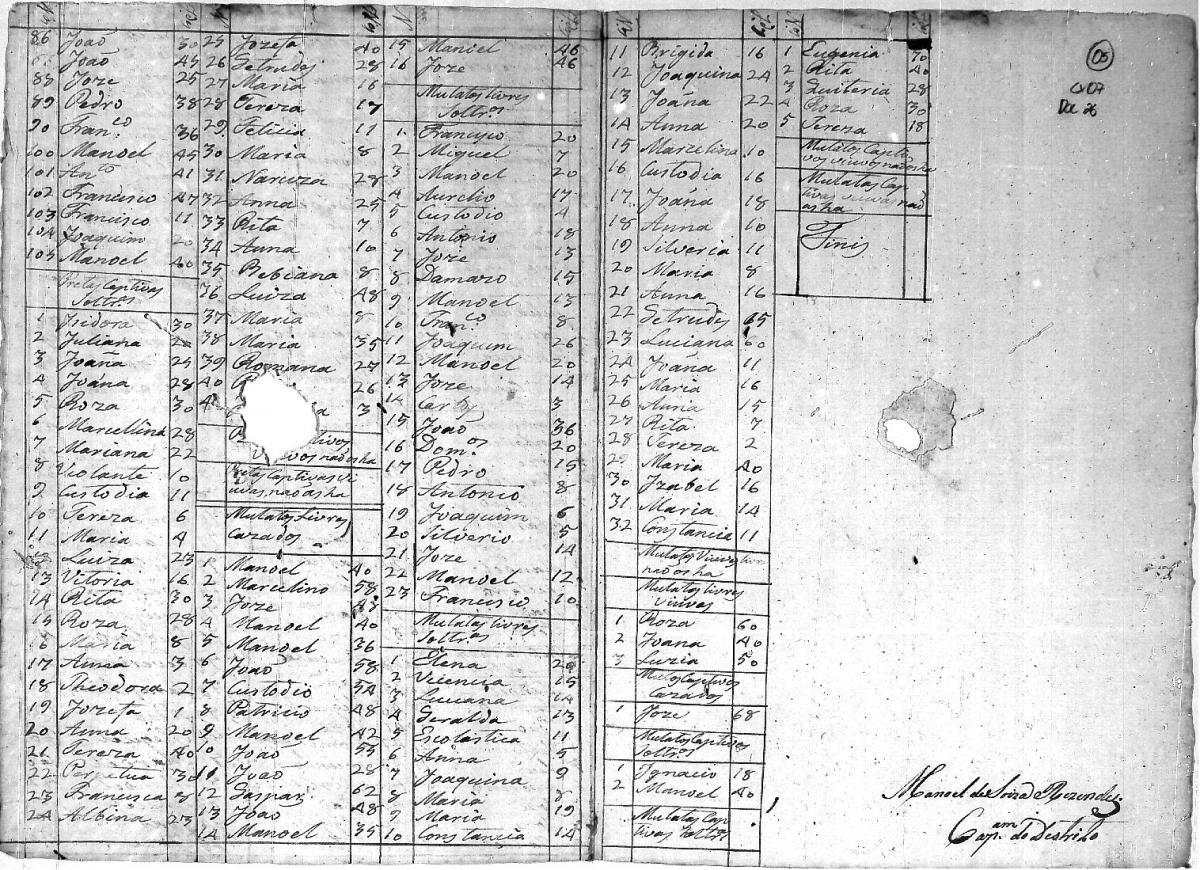 86 João 30
João 45
88 Joze 25
89 Pedro 38
90 Fran.co 36
100 Manoel 45
101 An.to 41
102 Francisco 47
103 Francisco 11
104 Joaquim 20
105 Manoel 40
Pretas Captivas
Soltr.as
1 Isidora 30
2 Juliana 20
3 Joana 25
4 Joana 28
5 Roza 30
6 Marcellina 28
7 Mariana 22
8 Violante 10
9 Custodia 11
10 Tereza 6
11 Maria 4
12 Luiza 23
13 Vitoria 16
14 Rita 30
15 Roza 28
16 Maria 8
17 Anna 3
18 Theodora 2
19 Jozefa 1
20 Anna 20
21 Tereza 40
22 Perpetua 30
23 Francisca 8
24 Albina 23
25 Jozefa 40
26 Getrudes 28
27 Maria 16
28 Tereza 17
29 Felicia 11
30 Maria 8
31 Narciza 28
32 Anna 25
33 Rita 7
34 Anna 10
35 Bebiana 8
36 Luiza 48
37 Maria 8
38 Maria 35
39 Romana 27
40 26
3
tivos
viuvos naõ as ha
Pretas Captivas vi
uvas, naõ as ha
Mulatos Livres
Cazados
1 Manoel 40
2 Marcelino 58
3 Joze 43
4 Manoel 40
5 Manoel 36
6 João 58
7 Custodio 54
8 Patricio 48
9 Manoel 42
10 João 55
11 João 28
12 Gaspar 62
13 João 48
14 Manoel 35
15 Manoel 46
16 Joze 46
Mulatos Livres
Soltr.os
1 Francisco 20
2 Miguel 7
3 Manoel 20
4 Aurelio 17
5 Custodio 4
6 Antonio 18
7 Joze 13
8 Damazo 15
9 Manoel 13
10 Fran.co 8
11 Joaquim 26
12 Manoel 20
13 Joze 14
14 3
15 João 36
16 Dom.os 20
17 Pedro 15
18 Antonio 8
19 Joaquim 6
20 Silverio 5
21 Joze 14
22 Manoel 12
23 Francisco 10
Mulatas Livres
Soltr.as
1 Elena 20
2 Vicencia 15
3 Luciana 14
4 Geralda 13
5 Escolastica 11
6 Anna 5
7 Joaquina 9
8 Maria 8
9 Maria 19
10 Constancia 14
11 Brigida 16
12 Joaquina 24
13 Joana 22
14 Anna 20
15 Marcelina 10
16 Custodia 16
17 Joana 18
18 Anna 10
19 Silveria 11
20 Maria 8
21 Anna 16
22 Getrudes 65
23 Luciana 60
24 Joana 11
25 Maria 16
26 Anna 15
27 Rita 7
28 Tereza 2
29 Maria 40
30 Izabel 16
31 Maria 14
32 Constancia 11
Mulatos Viuvos livr
naõ os ha
Mulatas livres
viuvas
1 Roza 60
2 Joana 40
3 Luzia 50
Mulatos Captivos
Cazados
1 Joze 68
Mulatos Captivos
Soltr.os
1 Ignacio 18
2 Manoel 40
Mulatas Cap
tivas Soltr.as
1 Eugenia 70
2 Rita 40
3 Quiteria 28
4 Roza 30
5 Tereza 18
Mulatos Capti
vos viuvos naõ os ha
Mulatas Cap
tivas viuvas naõ
as ha
Finis
05
Manoel de Souza Rezende
Cap.am do Destrito